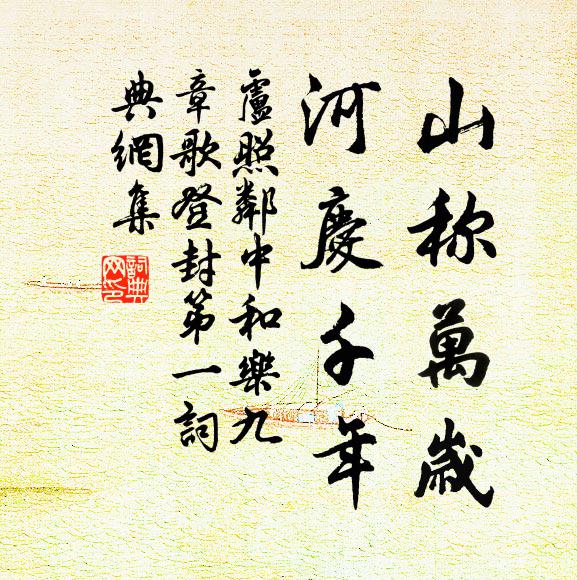 山称萬歲
河慶千年
盧照鄰中和樂九
章歌登封第一詞
典網集
詞典網印